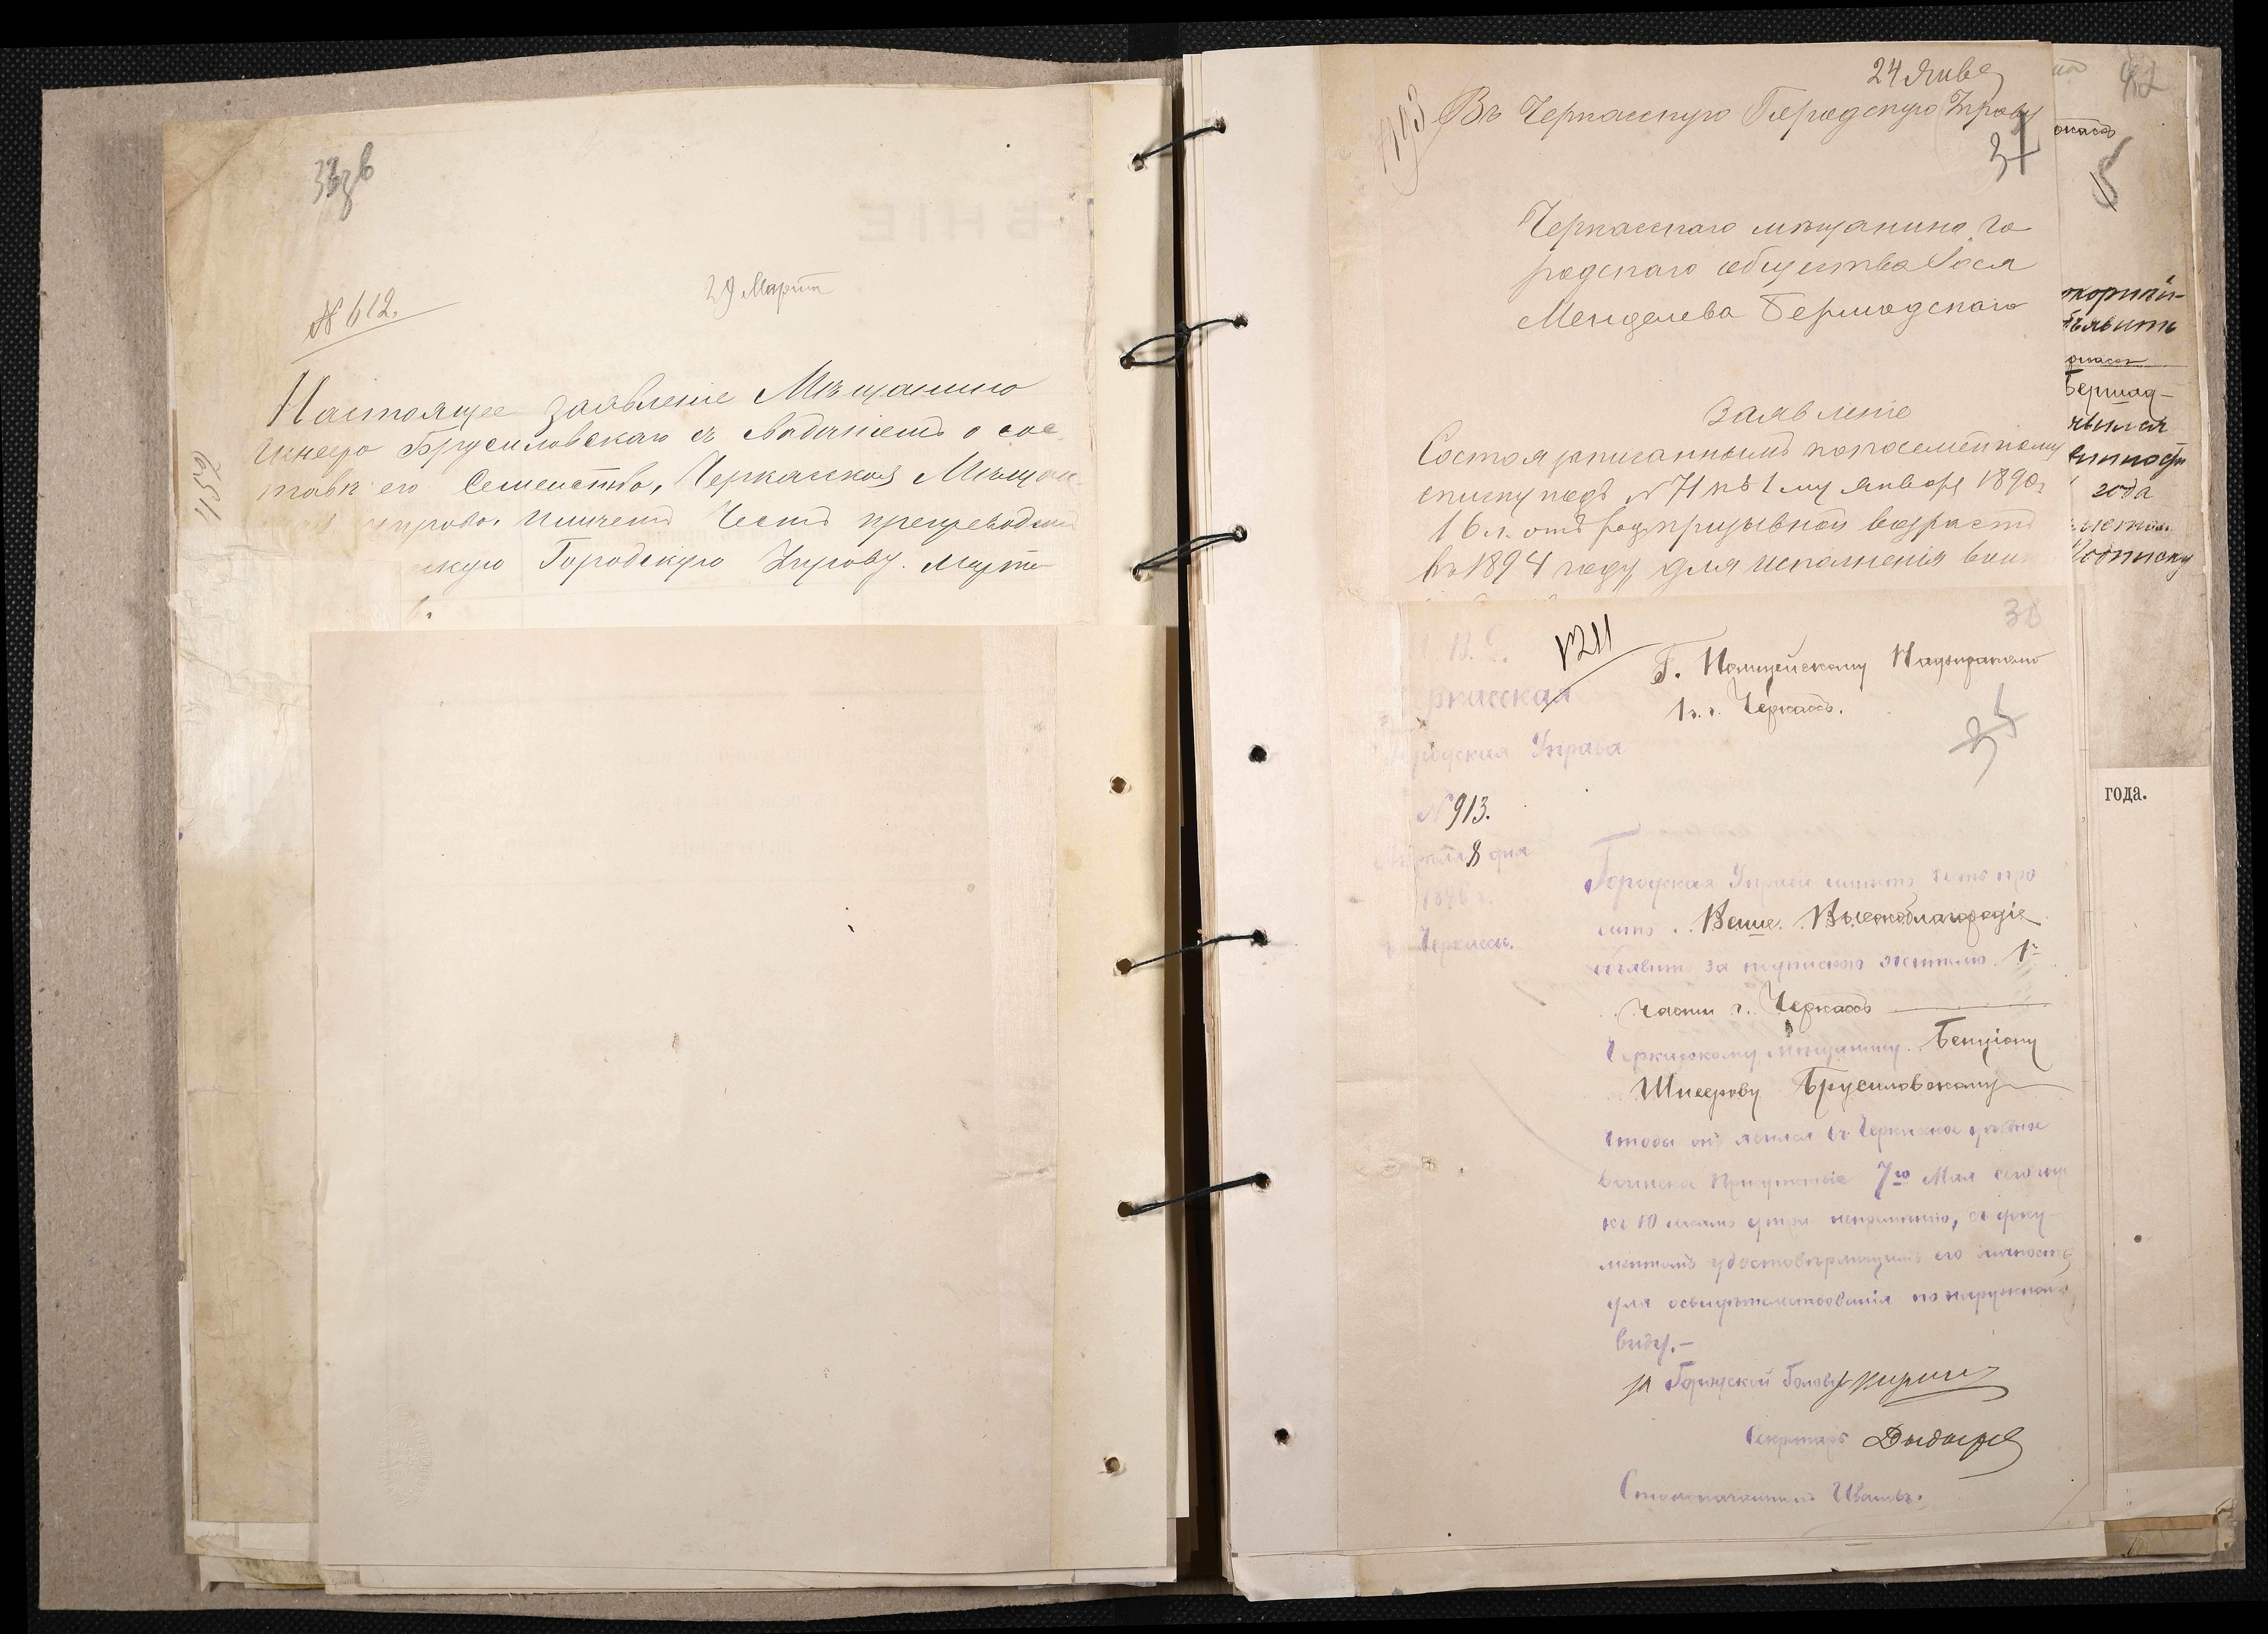 № 612.
29 Марта
Настоящее заявленіе Мѣщанина
Шнеера Брусиловскаго съ свѣдѣніемъ о сос-
тавѣ его Семейства, Черкасская Мѣщан-
управа имѣетъ честь препроводить
скую Городскую Управу. Марта
1152
24 Янв
Въ Черкасскую Городскую Управу
31
Черкасскаго мѣщанина го
родскаго общества Іося
Менделева Бершадскаго
Заявленіе
Состоя записаннымъ по посемейному
списку подъ № 71 къ 1му января 1890 г
16 л. отъ роду призывной возрастъ
въ 1894 году, для исполненія воин
№ 211
Г. Полицейскому Надзирателю
1 ч. г. Черкассъ.
ркасская
Городская Управа
№ 913.
Апрѣля 8 дня
1896 г.
г. Черкассы.
Городская Управа имѣетъ честь про
сить Ваше Высокоблагородіе
объявить за подпискою жителю 1й
части г. Черкассъ
Черкасскому мѣщанину Бенціону
Шнеерову Брусиловскому
чтобы онъ явился въ Черкасское уѣздное
воинское Присутствіе 7го Мая сего года
къ 10 часамъ утра непремѣнно, съ доку-
ментомъ удостовѣряющимъ его личность,
для освидѣтельствованія по наружному
виду.-
за Городской Голова
Секретарь
Столоначальникъ Ивановъ.
42
ъявить
Бершад-
года
Подписку
года.